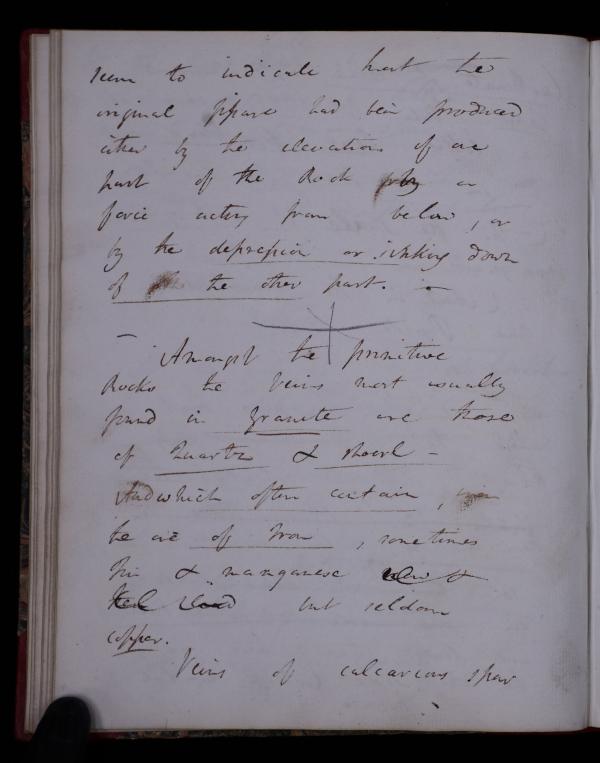 seem to indicate that the
original fissure had been produced
either by the elevation of one
part of the Rock by a
force acting from below, or
by the depression or sinking down
of the other part. —
Amongst the primitive
Rocks the Veins most usually
found in granite are those
of Quartz & shoerl –
And which often contain,
the ore of Iron, sometimes
Tin & manganese
but seldom
copper.
Veins of calcareous spar